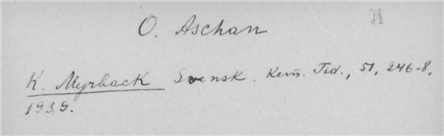 78
O. Aschan
K. Myrback Svensk. Kem. Tid., 51, 246-8,
1939.